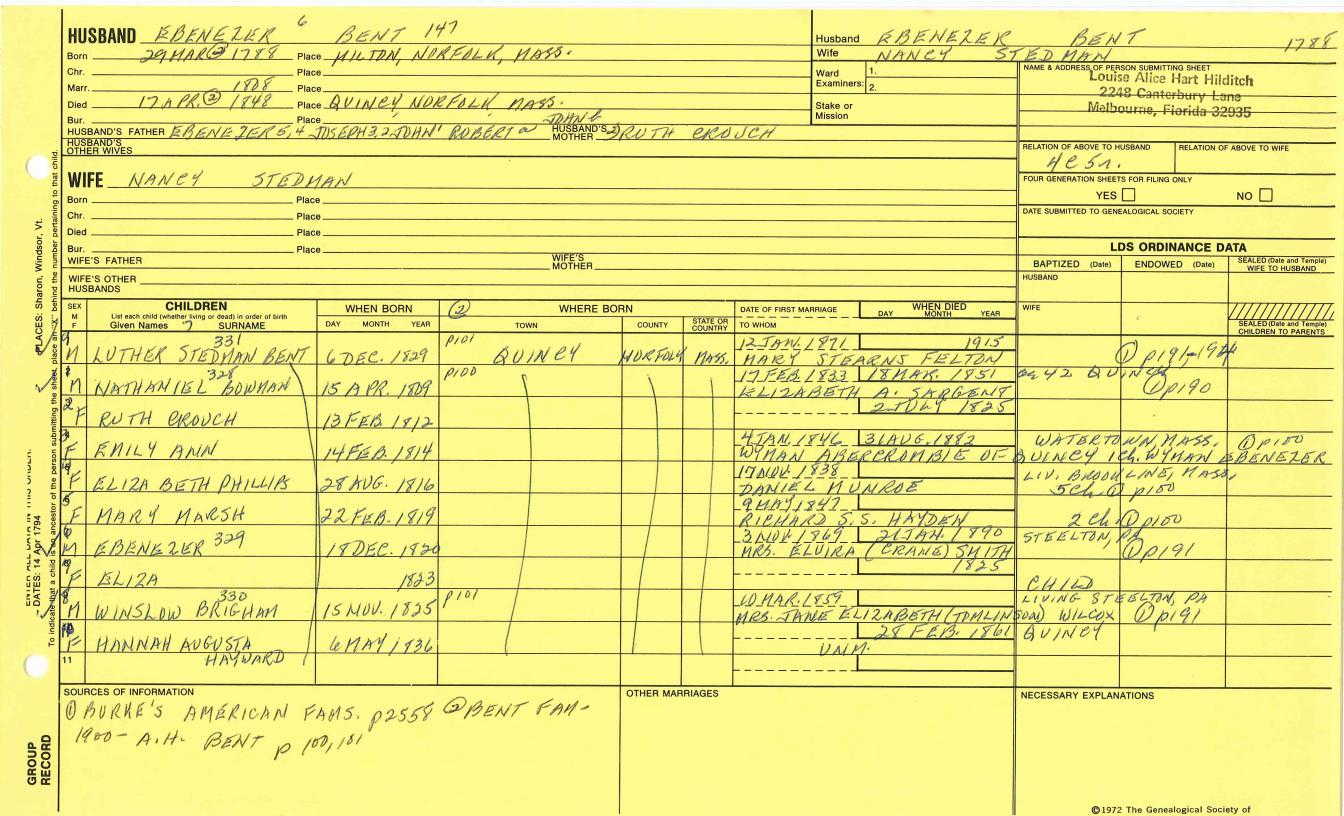 HUSBAND EBENEZER 6 BENT 147
Born 29 MAR ② 1788 Place MILTON, NORFOLK, MASS.
Chr. Place
Marr. 1808 Place
Died 17 APR. ② 1848 Place QUINCY, NORFOLK, MASS.
Bur. Place
HUSBAND'S FATHER EBENEZER 5,4 JOSEPH 3,2 JOHN' ROBERT a HUSBAND'S MOTHER RUTH CROUCH
HUSBAND'S OTHER WIVES
Husband EBENEZER BENT 1788
Wife NANCY STEDMAN
Ward Examiners: 1.
2.
Stake or Mission
NAME & ADDRESS OF PERSON SUBMITTING SHEET
Louise Alice Hart Hilditch
2248 Canterbury Lane
Melbourne, Florida 32935
RELATION OF ABOVE TO HUSBAND RELATION OF ABOVE TO WIFE
4C5r.
FOUR GENERATION SHEETS FOR FILING ONLY
YES NO
DATE SUBMITTED TO GENEALOGICAL SOCIETY
WIFE NANCY STEDMAN
Born Place
Chr. Place
Died Place
Bur. Place
WIFE'S FATHER WIFE'S MOTHER
WIFE'S OTHER HUSBANDS
LDS ORDINANCE DATA
BAPTIZED (Date) ENDOWED (Date) SEALED (Date and Temple) WIFE TO HUSBAND
HUSBAND
WIFE
SEALED (Date and Temple) CHILDREN TO PARENTS
SEX M F
CHILDREN
List each child (whether living or dead) in order of birth
Given Names 7 SURNAME
WHEN BORN
DAY MONTH YEAR
② WHERE BORN
TOWN COUNTY STATE OR COUNTRY
DATE OF FIRST MARRIAGE
TO WHOM
WHEN DIED
DAY MONTH YEAR
9 M LUTHER STEDMAN BENT 331 6 DEC. 1829 p101 QUINCY NORFOLK MASS. 12 JAN. 1871 1915
MARY STEARNS FELTON ① p191-194
1 M NATHANIEL BOWMAN 328 15 APR. 1809 p100 17 FEB. 1833 18 MAR. 1851 ag 42 QUINCY
ELIZABETH A. SARGENT ① p190
2 F RUTH CROUCH 13 FEB. 1812 2 JULY 1825
3 F EMILY ANN 14 FEB. 1814 4 JAN. 1846 31 AUG. 1882 WATERTOWN, MASS. ① p100
WYMAN ABERCROMBIE OF QUINCY 1 Ch. WYMAN EBENEZER
4 F ELIZA BETH PHILLIPS 28 AUG. 1816 17 NOV. 1838 LIV. BROOKLINE, MASS.
DANIEL MUNROE 5 Ch. ① p100
5 F MARY MARSH 22 FEB. 1819 9 MAY 1847
RICHARD S.S. HAYDEN 2 Ch. ① p100
6 M EBENEZER 329 18 DEC. 1820 3 NOV. 1869 21 JAN. 1890 STEELTON, PA
MRS. ELVIRA (CRANE) SMITH ① p191
7 F ELIZA 1823 1825 CHILD
8 M WINSLOW BRIGHAM 330 15 NOV. 1825 p101 10 MAR. 1859 LIVING STEELTON, PA
MRS. JANE ELIZABETH (TOMLINSON) WILCOX ① p191
10 F HANNAH AUGUSTA HAYWARD 6 MAY 1836 28 FEB. 1861 QUINCY
UNM.
11
SOURCES OF INFORMATION
① BURKE'S AMERICAN FAMS. p2558 ② BENT FAM-
1900- A.H. BENT p 100, 101
OTHER MARRIAGES
NECESSARY EXPLANATIONS
©1972 The Genealogical Society of
GROUP RECORD
ENTER ALL DATA IN THIS ORDER:
DATES: 14 Apr 1794
PLACES: Sharon, Windsor, Vt.
To indicate that a child is an ancestor of the person submitting the sheet, place an "X" behind the number pertaining to that child.